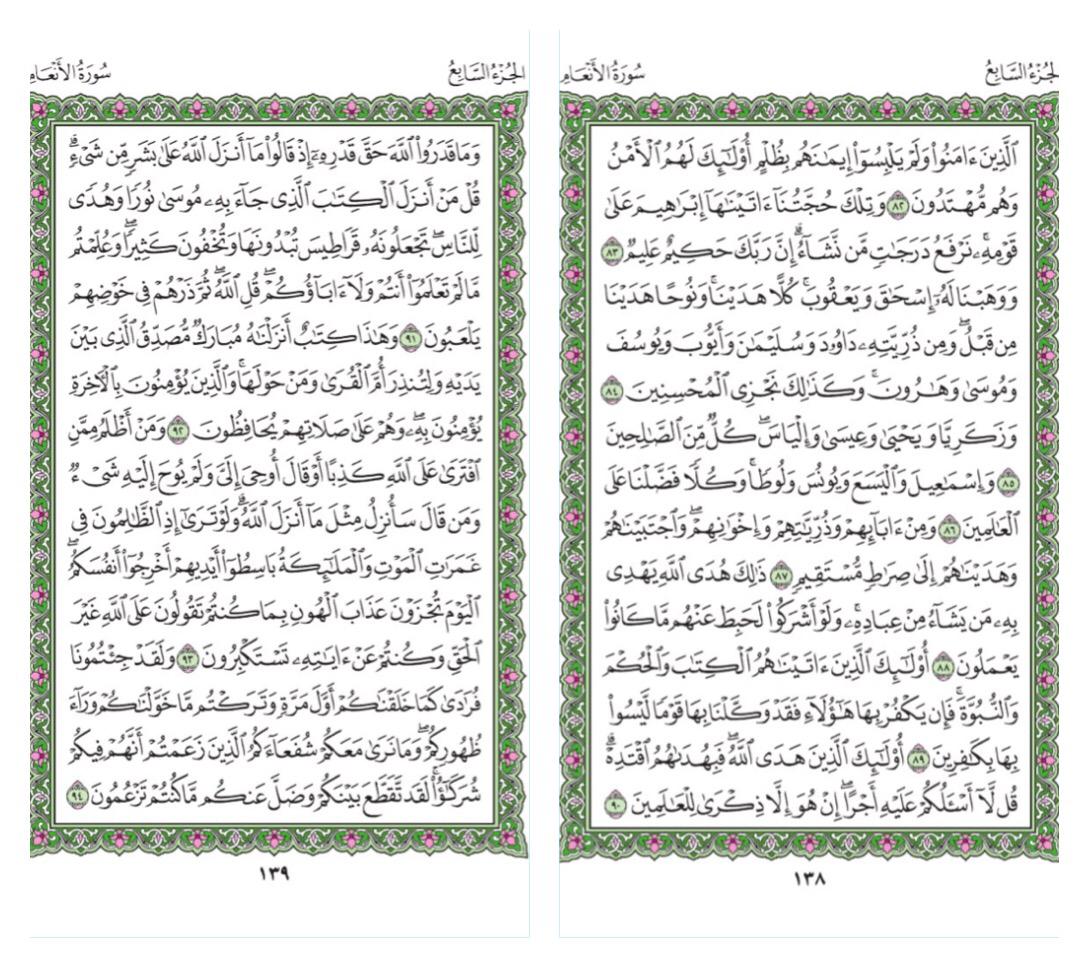 الجُزْءُ السَّابِعُ سُورَةُ الأَنْعَامِ
الَّذِينَ ءَامَنُوا۟ وَلَمْ يَلْبِسُوٓا۟ إِيمَٰنَهُم بِظُلْمٍ أُو۟لَٰٓئِكَ لَهُمُ ٱلْأَمْنُ
وَهُم مُّهْتَدُونَ ٨٢ وَتِلْكَ حُجَّتُنَآ ءَاتَيْنَٰهَآ إِبْرَٰهِيمَ عَلَىٰ
قَوْمِهِۦ ۚ نَرْفَعُ دَرَجَٰتٍ مَّن نَّشَآءُ ۗ إِنَّ رَبَّكَ حَكِيمٌ عَلِيمٌ ٨٣
وَوَهَبْنَا لَهُۥٓ إِسْحَٰقَ وَيَعْقُوبَ ۚ كُلًّا هَدَيْنَا ۚ وَنُوحًا هَدَيْنَا
مِن قَبْلُ ۖ وَمِن ذُرِّيَّتِهِۦ دَاوُۥدَ وَسُلَيْمَٰنَ وَأَيُّوبَ وَيُوسُفَ
وَمُوسَىٰ وَهَٰرُونَ ۚ وَكَذَٰلِكَ نَجْزِى ٱلْمُحْسِنِينَ ٨٤
وَزَكَرِيَّا وَيَحْيَىٰ وَعِيسَىٰ وَإِلْيَاسَ ۖ كُلٌّ مِّنَ ٱلصَّٰلِحِينَ
٨٥ وَإِسْمَٰعِيلَ وَٱلْيَسَعَ وَيُونُسَ وَلُوطًا ۚ وَكُلًّا فَضَّلْنَا عَلَى
ٱلْعَٰلَمِينَ ٨٦ وَمِنْ ءَابَآئِهِمْ وَذُرِّيَّٰتِهِمْ وَإِخْوَٰنِهِمْ ۖ وَٱجْتَبَيْنَٰهُمْ
وَهَدَيْنَٰهُمْ إِلَىٰ صِرَٰطٍ مُّسْتَقِيمٍ ٨٧ ذَٰلِكَ هُدَى ٱللَّهِ يَهْدِى
بِهِۦ مَن يَشَآءُ مِنْ عِبَادِهِۦ ۚ وَلَوْ أَشْرَكُوا۟ لَحَبِطَ عَنْهُم مَّا كَانُوا۟
يَعْمَلُونَ ٨٨ أُو۟لَٰٓئِكَ ٱلَّذِينَ ءَاتَيْنَٰهُمُ ٱلْكِتَٰبَ وَٱلْحُكْمَ
وَٱلنُّبُوَّةَ ۚ فَإِن يَكْفُرْ بِهَا هَٰٓؤُلَآءِ فَقَدْ وَكَّلْنَا بِهَا قَوْمًا لَّيْسُوا۟
بِهَا بِكَٰفِرِينَ ٨٩ أُو۟لَٰٓئِكَ ٱلَّذِينَ هَدَى ٱللَّهُ ۖ فَبِهُدَىٰهُمُ ٱقْتَدِهْ ۗ
قُل لَّآ أَسْـَٔلُكُمْ عَلَيْهِ أَجْرًا ۖ إِنْ هُوَ إِلَّا ذِكْرَىٰ لِلْعَٰلَمِينَ ٩٠
١٣٨
الجُزْءُ السَّابِعُ سُورَةُ الأَنْعَامِ
وَمَا قَدَرُوا۟ ٱللَّهَ حَقَّ قَدْرِهِۦٓ إِذْ قَالُوا۟ مَآ أَنزَلَ ٱللَّهُ عَلَىٰ بَشَرٍ مِّن شَىْءٍ ۗ
قُلْ مَنْ أَنزَلَ ٱلْكِتَٰبَ ٱلَّذِى جَآءَ بِهِۦ مُوسَىٰ نُورًا وَهُدًى
لِّلنَّاسِ ۖ تَجْعَلُونَهُۥ قَرَاطِيسَ تُبْدُونَهَا وَتُخْفُونَ كَثِيرًا ۖ وَعُلِّمْتُم
مَّا لَمْ تَعْلَمُوٓا۟ أَنتُمْ وَلَآ ءَابَآؤُكُمْ ۖ قُلِ ٱللَّهُ ۖ ثُمَّ ذَرْهُمْ فِى خَوْضِهِمْ
يَلْعَبُونَ ٩١ وَهَٰذَا كِتَٰبٌ أَنزَلْنَٰهُ مُبَارَكٌ مُّصَدِّقُ ٱلَّذِى بَيْنَ
يَدَيْهِ وَلِتُنذِرَ أُمَّ ٱلْقُرَىٰ وَمَنْ حَوْلَهَا ۚ وَٱلَّذِينَ يُؤْمِنُونَ بِٱلْءَاخِرَةِ
يُؤْمِنُونَ بِهِۦ ۖ وَهُمْ عَلَىٰ صَلَاتِهِمْ يُحَافِظُونَ ٩٢ وَمَنْ أَظْلَمُ مِمَّنِ
ٱفْتَرَىٰ عَلَى ٱللَّهِ كَذِبًا أَوْ قَالَ أُوحِىَ إِلَىَّ وَلَمْ يُوحَ إِلَيْهِ شَىْءٌ
وَمَن قَالَ سَأُنزِلُ مِثْلَ مَآ أَنزَلَ ٱللَّهُ ۗ وَلَوْ تَرَىٰٓ إِذِ ٱلظَّٰلِمُونَ فِى
غَمَرَٰتِ ٱلْمَوْتِ وَٱلْمَلَٰٓئِكَةُ بَاسِطُوٓا۟ أَيْدِيهِمْ أَخْرِجُوٓا۟ أَنفُسَكُمُ ۖ
ٱلْيَوْمَ تُجْزَوْنَ عَذَابَ ٱلْهُونِ بِمَا كُنتُمْ تَقُولُونَ عَلَى ٱللَّهِ غَيْرَ
ٱلْحَقِّ وَكُنتُمْ عَنْ ءَايَٰتِهِۦ تَسْتَكْبِرُونَ ٩٣ وَلَقَدْ جِئْتُمُونَا
فُرَٰدَىٰ كَمَا خَلَقْنَٰكُمْ أَوَّلَ مَرَّةٍ وَتَرَكْتُم مَّا خَوَّلْنَٰكُمْ وَرَآءَ
ظُهُورِكُمْ ۖ وَمَا نَرَىٰ مَعَكُمْ شُفَعَآءَكُمُ ٱلَّذِينَ زَعَمْتُمْ أَنَّهُمْ فِيكُمْ
شُرَكَٰٓؤُا۟ ۚ لَقَد تَّقَطَّعَ بَيْنَكُمْ وَضَلَّ عَنكُم مَّا كُنتُمْ تَزْعُمُونَ ٩٤
١٣٩